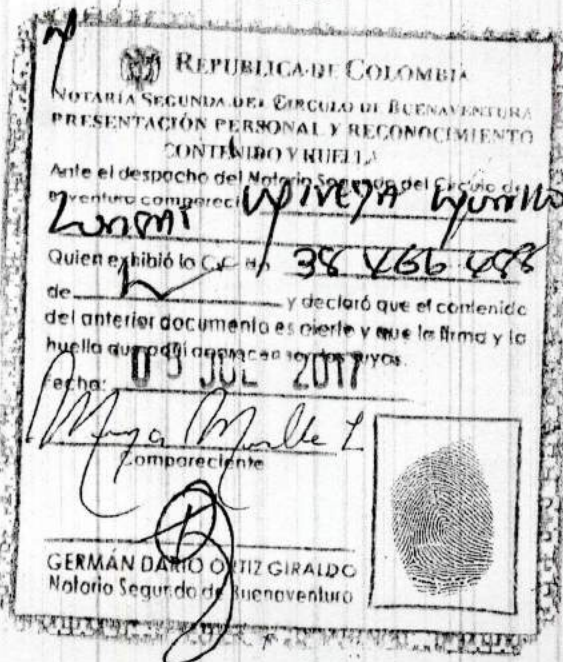 REPUBLICA DE COLOMBIA
NOTARÍA SEGUNDA DEL CIRCULO DE BUENAVENTURA
PRESENTACIÓN PERSONAL Y RECONOCIMIENTO
CONTENIDO Y HUELLA
Ante el despacho del Notario Segundo del Circulo de
B/ventura compareció
Quien exhibió la C.C. No 38 466
de y declaró que el contenido
del anterior documento es cierto y que la firma y la
huella que aquí aparecen son suyas.
Fecha: JUL 2017
Compareciente
GERMÁN DARÍO ORTIZ GIRALDO
Notario Segundo de Buenaventura